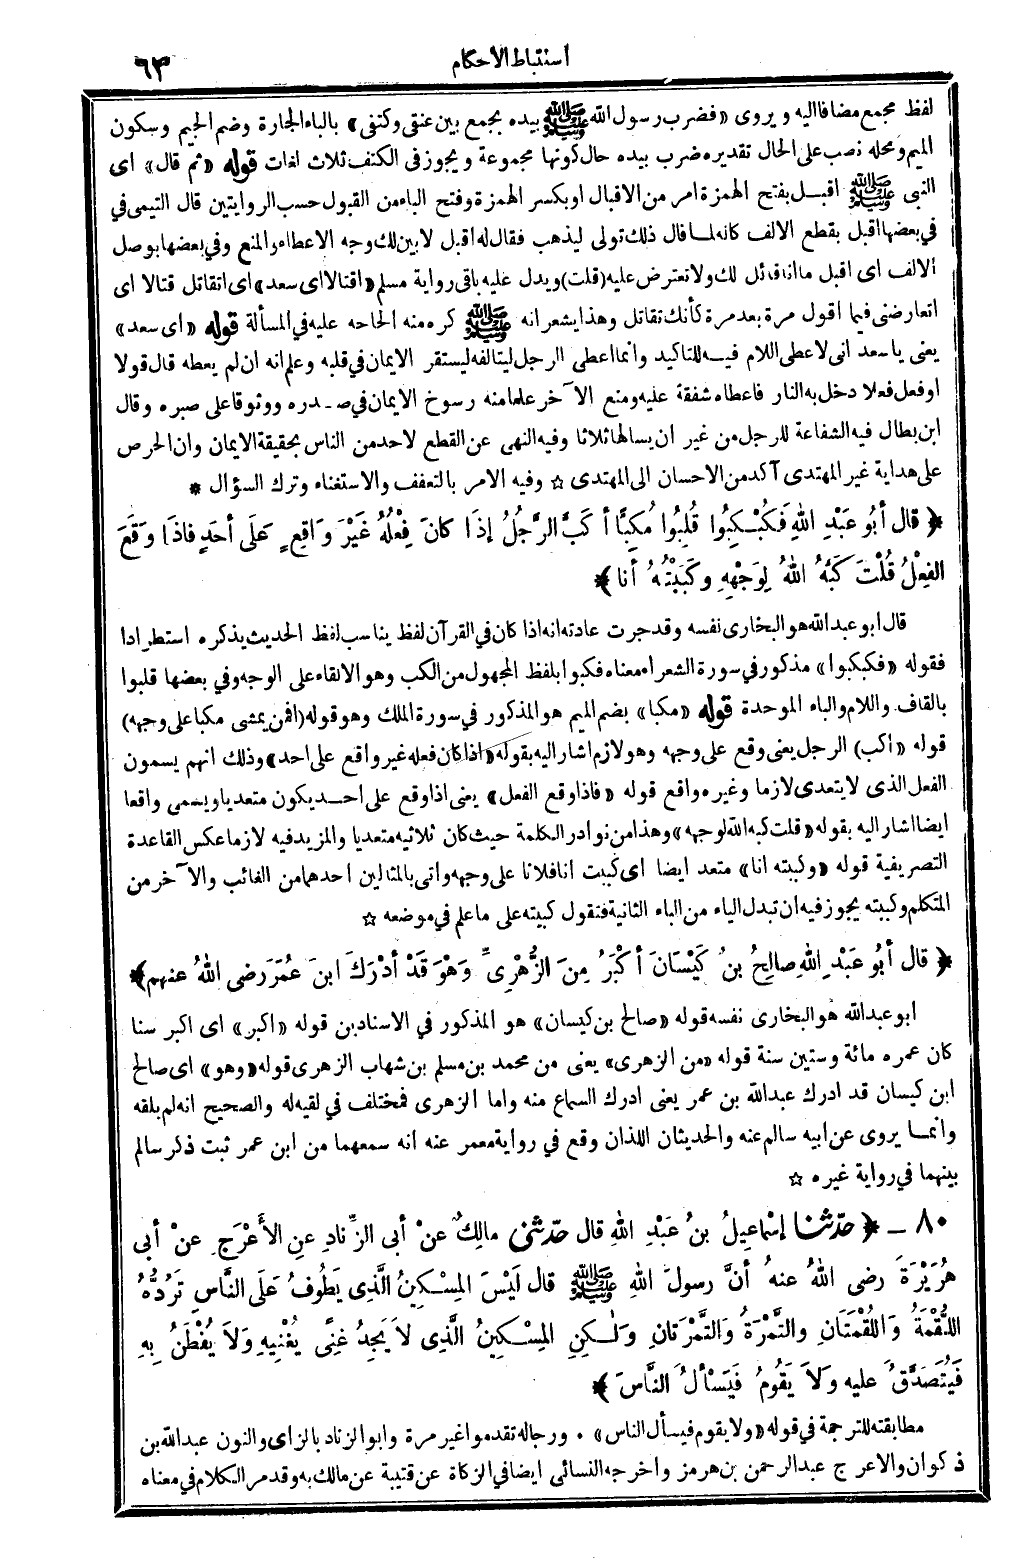 أستنباط الأحكام ٦٣
لفظ مجمع مضافا اليه ويروى «فضرب رسول الله ﷺ بيده بجمع بين عنقى وكتفى» بالباء الجارة وضم الجيم وسكون
الميم ومحله نصب على الحال تقديره ضرب بيده حال كونها مجموعة ويجوز فى الكتف ثلاث لغات قوله «ثم قال» اى
النبى ﷺ اقبل بفتح الهمزة امر من الاقبال او بكسر الهمزة وفتح الباء من القبول حسب الروايتين قال التيمى فى
فى بعضها اقبل بقطع الالف كانه لما قال ذلك تولى ليذهب فقال له اقبل لابين لك وجه الاعطاء والمنع وفى بعضها بوصل
الالف اى اقبل ما انا قائل لك ولا تعترض عليه (قلت) ويدل عليه باقى رواية مسلم «اقتالا اى سعد» اى اتقاتل قتالا اى
اتعارضنى فيما اقول مرة بعد مرة كأنك تقاتل وهذا يشعر انه ﷺ كره منه الحاحه عليه فى المسألة قوله «اى سعد»
يعنى ياسعد انى لاعطى اللام فيه للتاكيد وانما اعطى الرجل ليتالفه ليستقر الايمان فى قلبه وعلم انه ان لم يعطه قال قولا
او فعل فعلا دخل به النار فاعطاه شفقة عليه ومنع الآخر علما منه رسوخ الايمان فى صدره ووثوقا على صبره وقال
ابن بطال فيه الشفاعة للرجل من غير ان يسالها ثلاثا وفيه النهى عن القطع لاحد من الناس بحقيقة الايمان وان الحرص
على هداية غير المهتدى آكد من الاحسان الى المهتدى ☆ وفيه الامر بالتعفف والاستغناء وترك السؤال *
﴿ قال أبُو عَبْدِ اللهِ فَكُبْكِبُوا قُلِبُوا مُكِبًّا أكَبَّ الرَّجُلُ إذَا كانَ فِعْلُهُ غَيْرَ وَاقِعٍ عَلَى أحَدٍ فاذَا وَقَعَ
الفِعْلُ قُلْتَ كَبَّهُ اللهُ لِوَجْهِهِ وكَبَبْتُهُ أنا ﴾
قال ابو عبدالله هو البخارى نفسه وقد جرت عادته انه اذا كان فى القرآن لفظ يناسب لفظ الحديث يذكره استطرادا
فقوله «فكبكبوا» مذكور فى سورة الشعراء معناه فكبوا بلفظ المجهول من الكب وهو الالقاء على الوجه وفى بعضها قلبوا
بالقاف واللام والباء الموحدة قوله «مكبا» بضم الميم هو المذكور فى سورة الملك وهو قوله (افمن يمشى مكبا على وجهه)
قوله «أكب) الرجل يعنى وقع على وجهه وهو لازم اشار اليه بقوله «اذا كان فعله غير واقع على احد» وذلك انهم يسمون
الفعل الذى لا يتعدى لازما وغيره واقع قوله «فاذا وقع الفعل» يعنى اذا وقع على احد يكون متعديا ويسمى واقعا
ايضا اشار اليه بقوله «قلت كبه الله لوجهه» وهذا من نوادر الكلمة حيث كان ثلاثيه متعديا والمزيد فيه لازما عكس القاعدة
التصريفية قوله «وكببته انا» متعد ايضا اى كببت انا فلانا على وجهه واتى بالمثالين احدهما من الغائب والآخر من
المتكلم وكببته يجوز فيه ان تبدل الياء من الباء الثانية فنقول كبيته على ما علم فى موضعه ☆
﴿ قال أبُو عَبْدِ اللهِ صالِحُ بنُ كَيْسَانَ أكْبَرُ مِنَ الزُّهْرِىِّ وَهْوَ قَدْ أدْرَكَ ابنَ عُمَرَ رضى اللهُ عنهم ﴾
ابو عبدالله هو البخارى نفسه قوله «صالح بن كيسان» هو المذكور فى الاسناد بن قوله «اكبر» اى اكبر سنا
كان عمره مائة وستين سنة قوله «من الزهرى» يعنى من محمد بن مسلم بن شهاب الزهرى قوله «وهو» اى صالح
ابن كيسان قد ادرك عبدالله بن عمر يعنى ادرك السماع منه واما الزهرى فمختلف فى لقيه له والصحيح انه لم يلقه
وانما يروى عن ابيه سالم عنه والحديثان اللذان وقع فى رواية معمر عنه انه سمعهما من ابن عمر ثبت ذكر سالم
بينهما فى رواية غيره ☆
٨٠ ــ ﴿ حدّثنا إسْماعِيلُ بنُ عَبْدِ اللهِ قال حدّثنى مالِكٌ عنْ أبى الزِّنادِ عنِ الأعْرَجِ عنْ أبى
هُرَيْرَةَ رضى اللهُ عنهُ أنَّ رسولَ اللهِ ﷺ قال لَيْسَ المِسْكِينُ الَّذِى يَطُوفُ عَلَى النَّاسِ تَرُدُّهُ
اللُّقْمَةُ وَاللُّقْمَتَانِ والتَّمْرَةُ وَالتَّمْرَتانِ ولٰكِنِ المِسْكِينُ الَّذِى لاَ يَجِدُ غِنًى يُغْنِيهِ وَلاَ يُفْطَنُ بِهِ
فَيُتَصَدَّقُ عليه وَلاَ يَقُومُ فَيَسْألُ النَّاسَ ﴾
مطابقته للترجمة فى قوله «ولا يقوم فيسأل الناس» . ورجاله تقدموا غير مرة وابو الزناد بالزاى والنون عبدالله بن
ذكوان والاعرج عبدالرحمن بن هرمز واخرجه النسائى ايضا فى الزكاة عن قتيبة عن مالك به وقد مر الكلام فى معناه